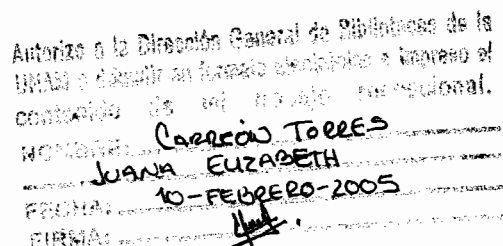 Autorizo a la Dirección General de Bibliotecas de la
UNAM a difundir en formato electrónico e impreso el
contenido de mi trabajo recepcional.
NOMBRE: CARREÓN TORRES
JUANA ELIZABETH
FECHA: 10-FEBRERO-2005
FIRMA: